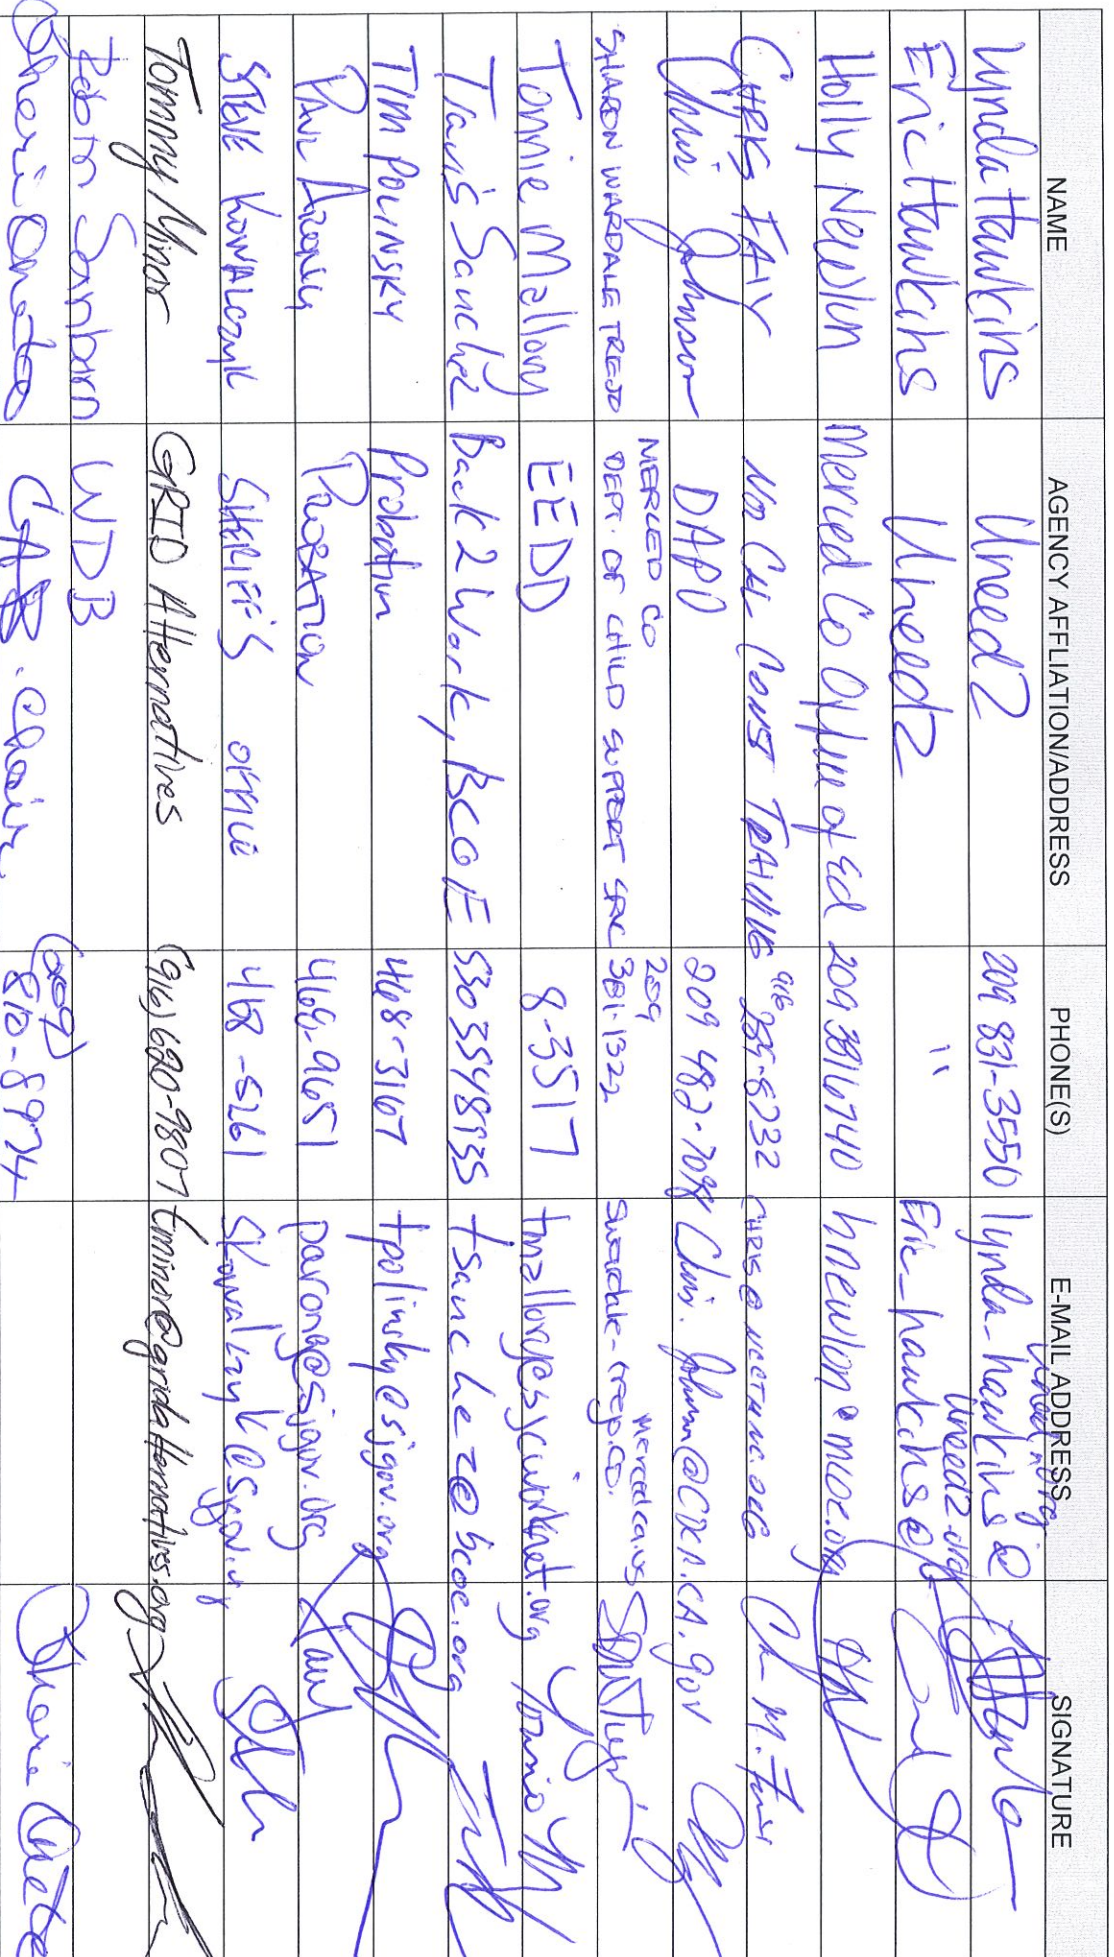 NAME AGENCY AFFLIATION/ADDRESS PHONE(S) E-MAIL ADDRESS SIGNATURE
Lynda Hawkins Uneed2 209 831-3550 lynda_hawkins@
uneed2.org
Eric Hawkins Uneed2 " Eric_hawkins@
uneed2.org
Holly Newlon Merced Co Office of Ed 209 381 6740 hnewlon@mcoe.org
CHRIS Nor CAL CONST TRAINING 916 285-8732 CHRIS@ncctinc.org Chris M.
Chris Johnson DAPO 209 482-7098 Chris.Johnson@CDCR.CA.gov
SHARON WARDALE TREJO MERCED CO
DEPT. OF CHILD SUPPORT SRVC 209
381-1322 Swardale-trejo.CO.
merced.ca.us
Tonnie Mallory EEDD 8-3517 tmallory@sjcworknet.org Tonnie M
Travis Sanchez Back 2 Work, BCOE 530 354 8935 tsanchez@bcoe.org
TIM POLINSKY Probation 468-3167 tpolinsky@sjgov.org
Probation 468-9651 parong@sjgov.org Paul
STEVE KOWALCZYK SHERIFF'S office 468-5261 SKowalczyk@sjgov.org
Tommy Minor GRID Alternatives (916) 620-9807 tminor@gridalternatives.org
Robin Sanborn WDB
Sheri CAB. Chair (209)
810-8974